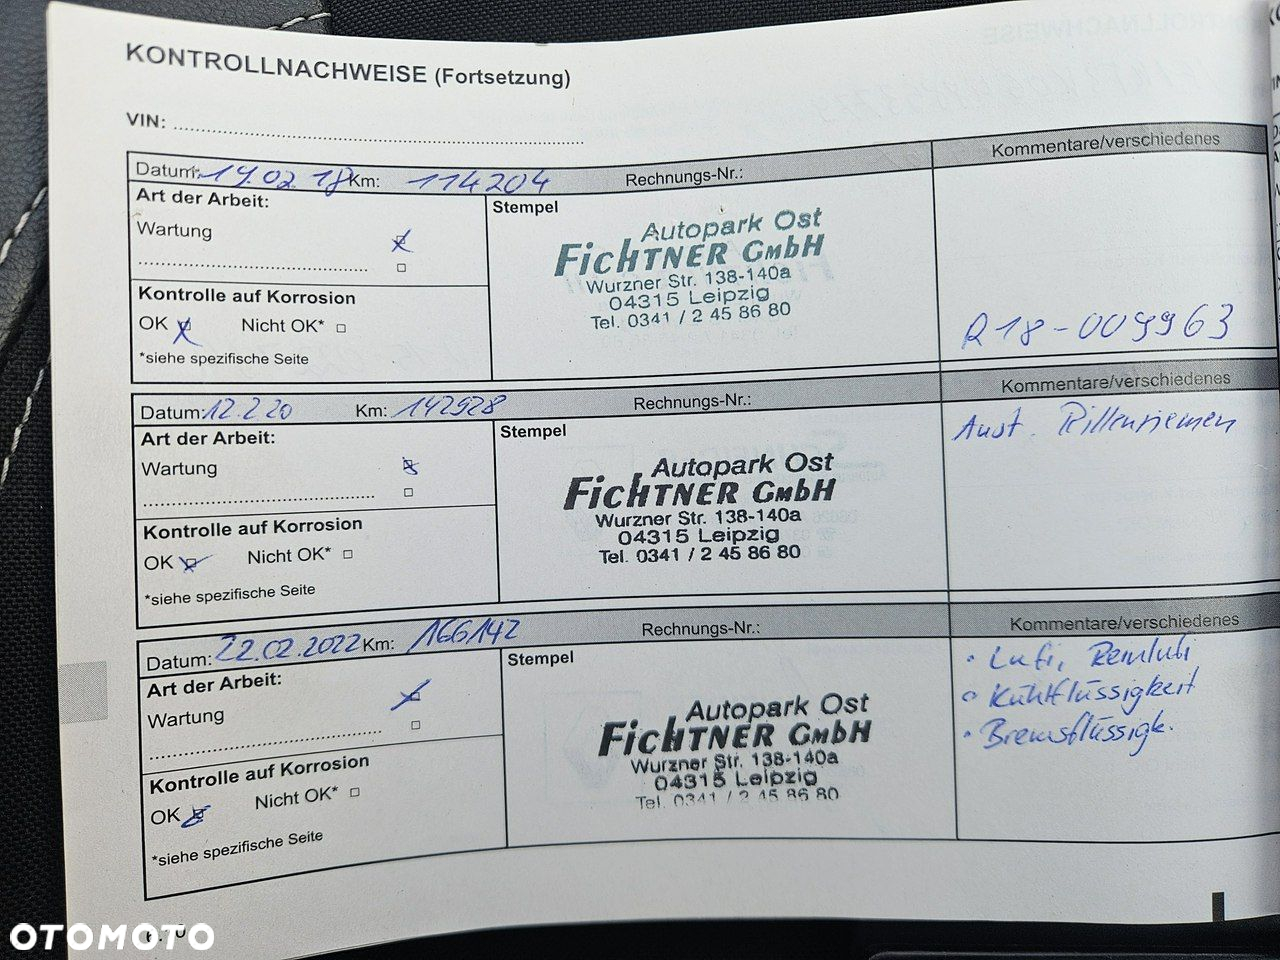 KONTROLLNACHWEISE (Fortsetzung)
VIN:
Datum: 14.02 18 Km: 114204 Rechnungs-Nr.: Kommentare/verschiedenes
Art der Arbeit:
Stempel
Wartung
Autopark Ost
FICHTNER GMBH
Wurzner Str. 138-140a
04315 Leipzig
Tel. 0341 / 2 45 86 80
Kontrolle auf Korrosion
OK Nicht OK*
*siehe spezifische Seite
R18-009963
Datum: 12.2.20 Km: 142928 Rechnungs-Nr.: Kommentare/verschiedenes
Art der Arbeit:
Stempel
Aust. Rillenriemen
Wartung
Autopark Ost
FICHTNER GMBH
Wurzner Str. 138-140a
04315 Leipzig
Tel. 0341 / 2 45 86 80
Kontrolle auf Korrosion
OK Nicht OK*
*siehe spezifische Seite
Datum: 22.02.2022 Km: 166142 Rechnungs-Nr.: Kommentare/verschiedenes
Art der Arbeit:
Stempel
• Lufi, Remlufi
• Kühlflüssigkeit
• Bremsflüssigk.
Wartung
Autopark Ost
FICHTNER GMBH
Wurzner Str. 138-140a
04315 Leipzig
Tel. 0341 / 2 45 86 80
Kontrolle auf Korrosion
OK Nicht OK*
*siehe spezifische Seite
OTOMOTO